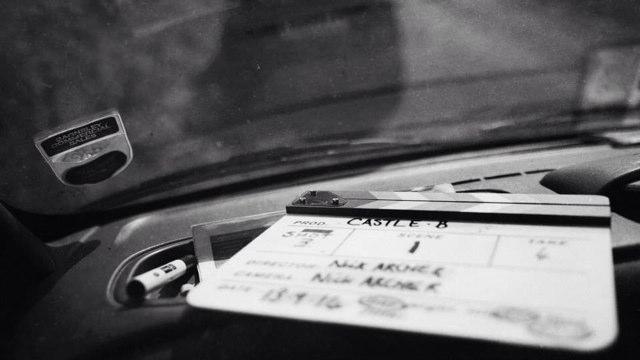 BARNSLEY
COMMERCIAL
SALES
PROD. CASTLE-B
SHOT SCENE TAKE
3 1 6
DIRECTOR NICK ARCHER
CAMERA NICK ARCHER
DATE 13.9.16